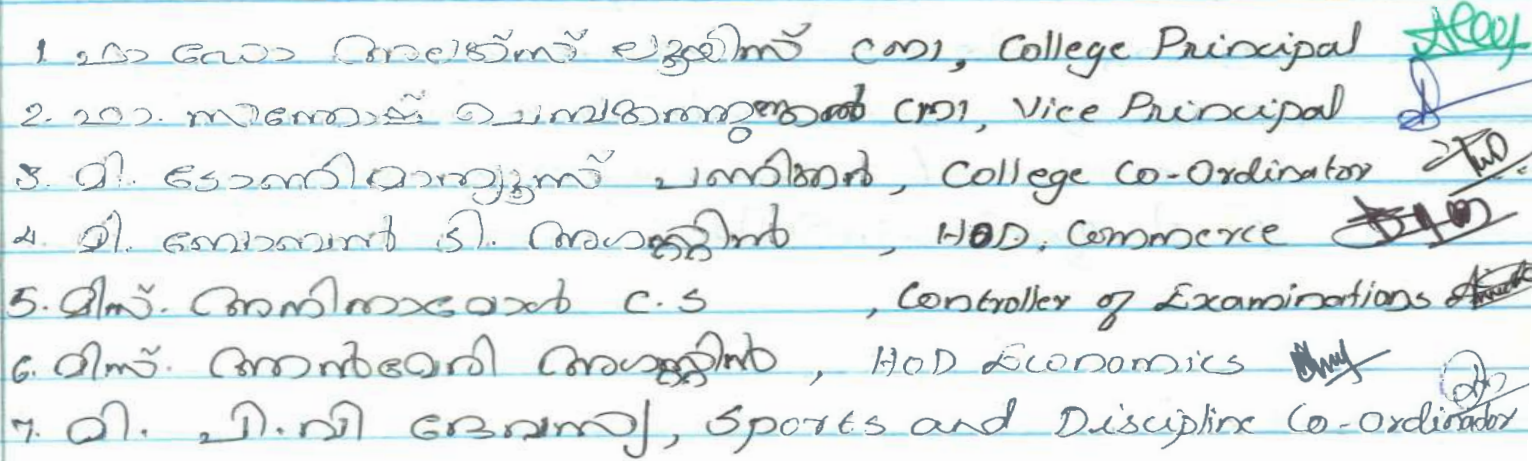 1. ഫാ ഡോ അലക്സ് ലൂയിസ് CMI, College Principal
2. ഫാ. സന്തോഷ് ചെമ്പകത്തുങ്കൽ CMI, Vice Principal
3. മി. ടോണിമാത്യൂസ് പണിക്കർ, College Co-Ordinator
4. മി. ബോബൻ ടി. അഗസ്റ്റിൻ , HOD, Commerce
5. മിസ്. അനിനാമോൾ C.S , Controller of Examinations
6. മിസ്. ആൻമേരി അഗസ്റ്റിൻ , HOD Economics
7. മി. പി.വി ദേവസ്യ, Sports and Discipline Co-Ordinador